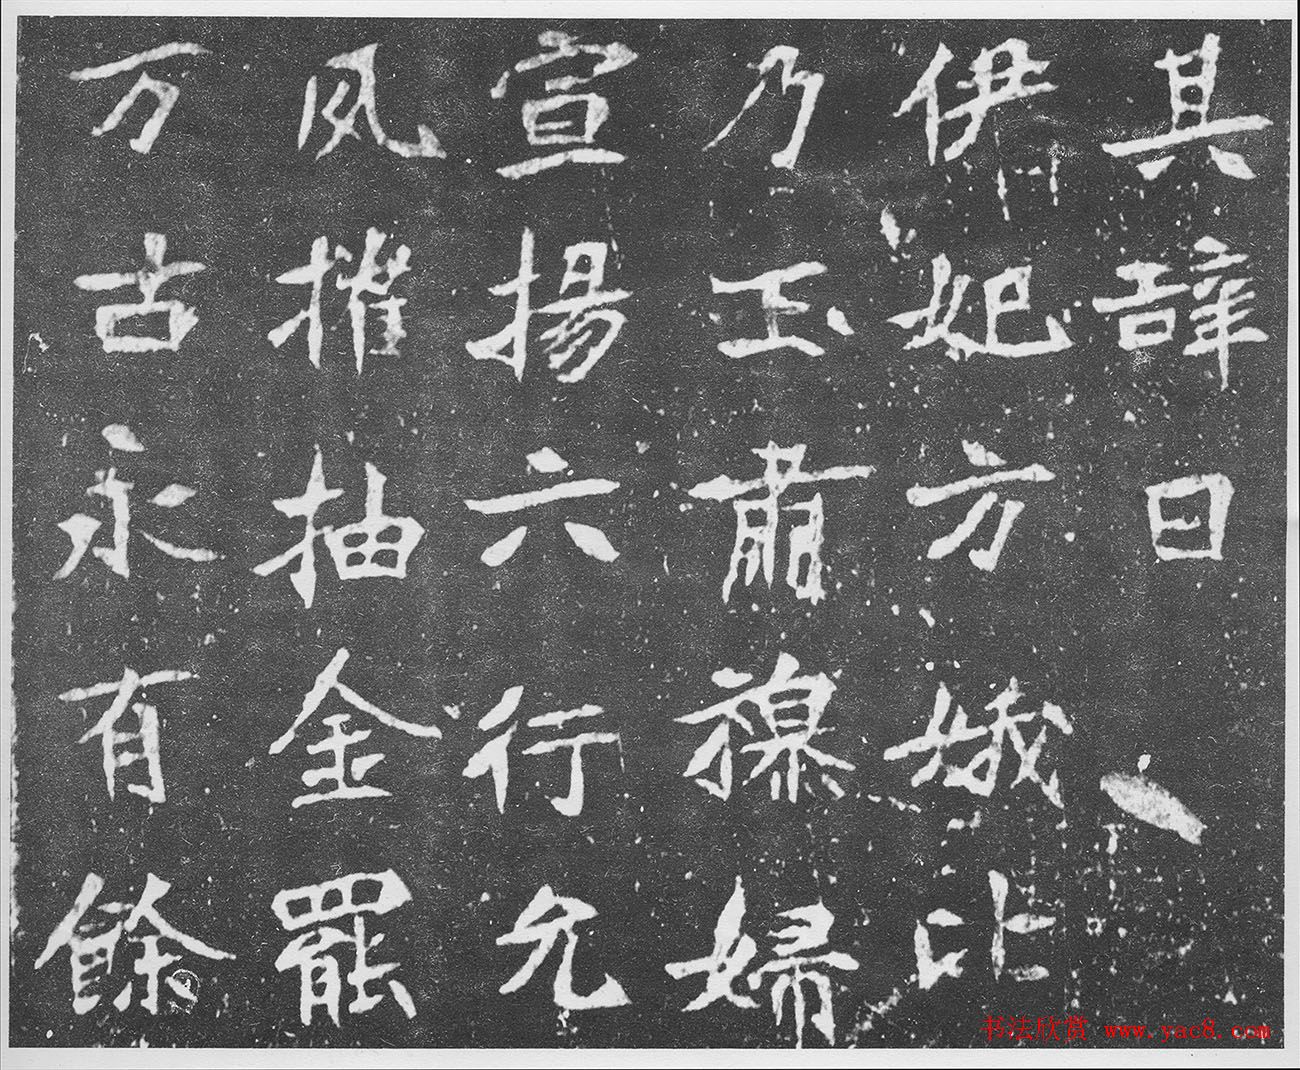 其辭曰
伊妃方娥比
乃玉肅穆婦
宣揚六行允
風摧抽金罷
万古永有餘
书法欣赏 www.yac8.com